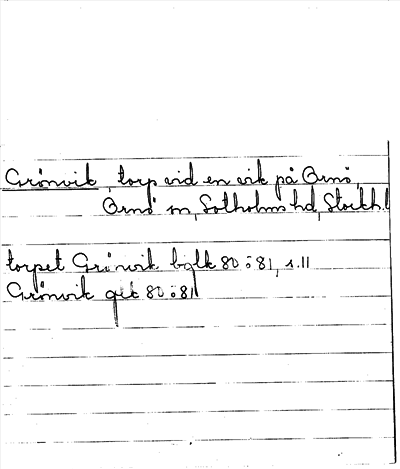 Grönvik torp vid en vik på Ornö,
Ornö sn, Sotholms hd, Stockh.l
torpet Grönvik 80:81, s. 11
Grönvik 80:81